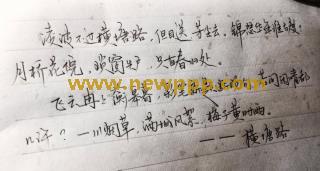 凌波不过横塘路，但目送、芳尘去。锦瑟华年谁与度？
月桥花院，琐窗朱户，只有春知处。
飞云冉冉蘅皋暮，彩
www.newppp.com
几许？一川烟草，满城风絮，梅子黄时雨。
——横塘路